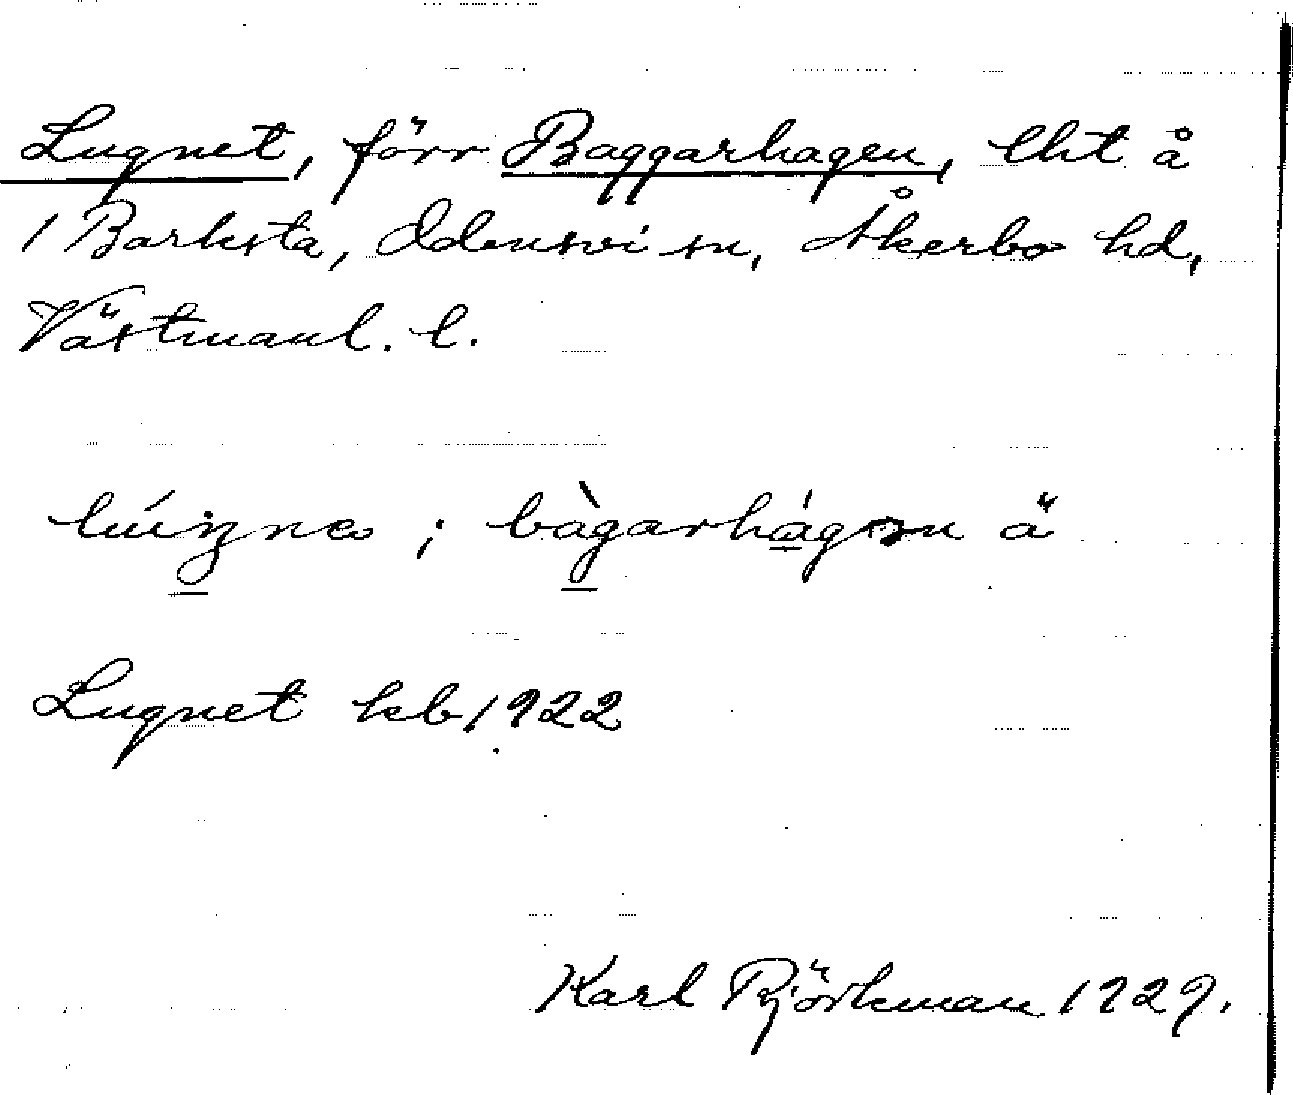 Lugnet, förr Baggarhagen, lht å
1 Barksta, Odensvi sn, Åkerbo hd,
Västmanl. l.
lúŋne ; bàgarhágən ä
Lugnet kb 1922
Karl Björkman 1929.